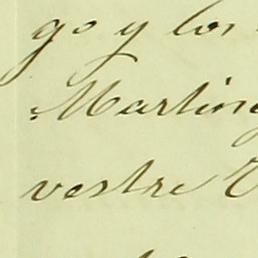 go y los
Martin
vestre